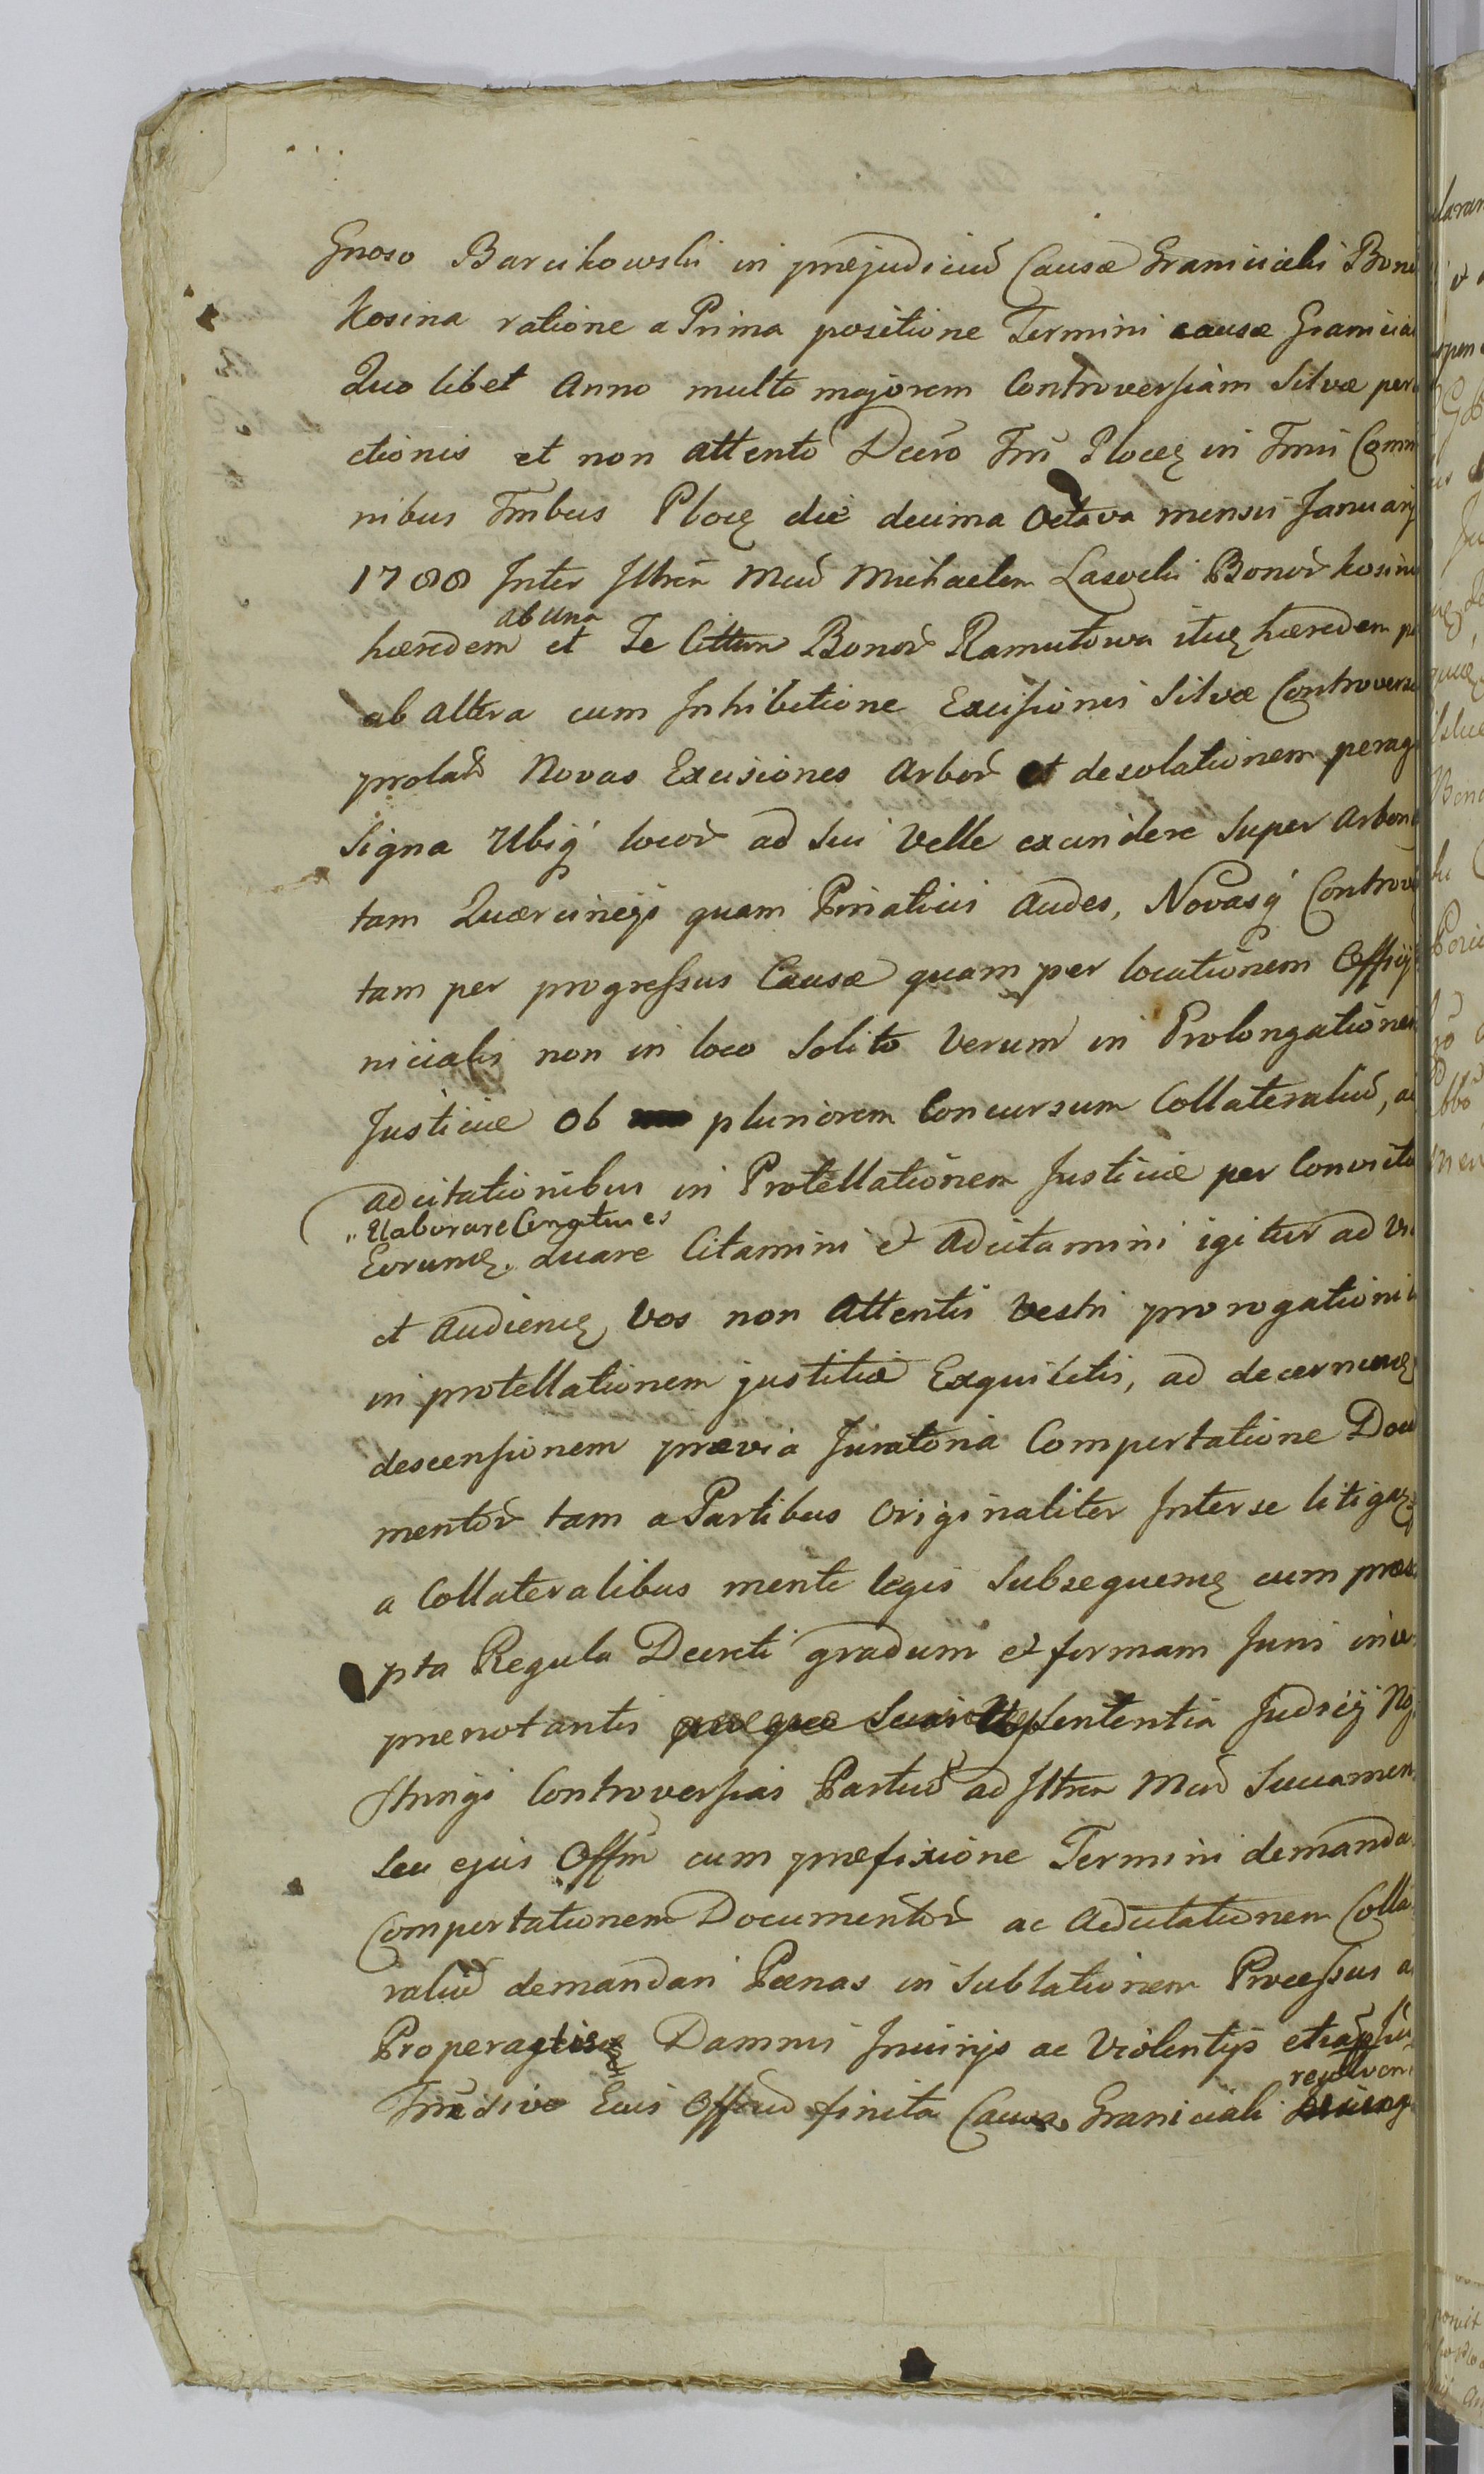 Gnoso Barcikowski in præjudiciũ Causæ Granicialis Bono
Kosina ratione a Prima positione Termini causæ Granicia
Quo libet Anno multo majorem Controversiam Silvæ per
ctionis et non attento Decro Trii Plocẹ in Trii Comm
nibus Trnibus Plocẹ die decima Octava mensis Januarij
1788 Inter Illtrem Mcũ Michaelem Lasocki Bonor Kosin
ab una
hæredem et Te Cittum Bonor Ramutowa itus hæredem
ab altera cum Inhibitione Excisionis Silvæ Controvers
prolat Novas Excisiones Arbor et desolationem perag
Signa Ubiq locor ad sui Velle excindere Super Arbori
tam Quercinejs quam Piniaticis Audes, Novasq Controv
tam per progressus Causæ quam per locationem Officij
nicialis non in loco Solito Verum in Prolongationem
Justiciæ Ob pluriorem Concursum Collateraliũ, a
adcitationibus in Protellationem Justiciæ per Convicto
Elaborare Cogitures
Eorumq. quare Citamini et Adcitamini igitur ad Vi
et Audienẹ Vos non Attentis Vestri prorogationi
in protellationem justitiæ Exquisitis, ad decernenẹ
descensionem prævia Juratoria Comportatione Docu
mentor tam a Partibus Originaliter Inter se litiganẹ
a Collateralibus mente legis Subsequenẹ cum præs
pta Regula Decreti gradum et formam Juris in
prenotantis Sententia Judicij
Controversias Partiũ ad Illtrem Mcũ Succamer
Seu ejus Offm cum præfixione Termini demanda
Comportationem Documentor ac Adcitationem Colla
raliũ demandari Pœnas in Sublationem Processus a
Pro peractis Damnis Injurijs ac Violentijs
resolven
sive Ejus Officiũ finita Causa Graniciali